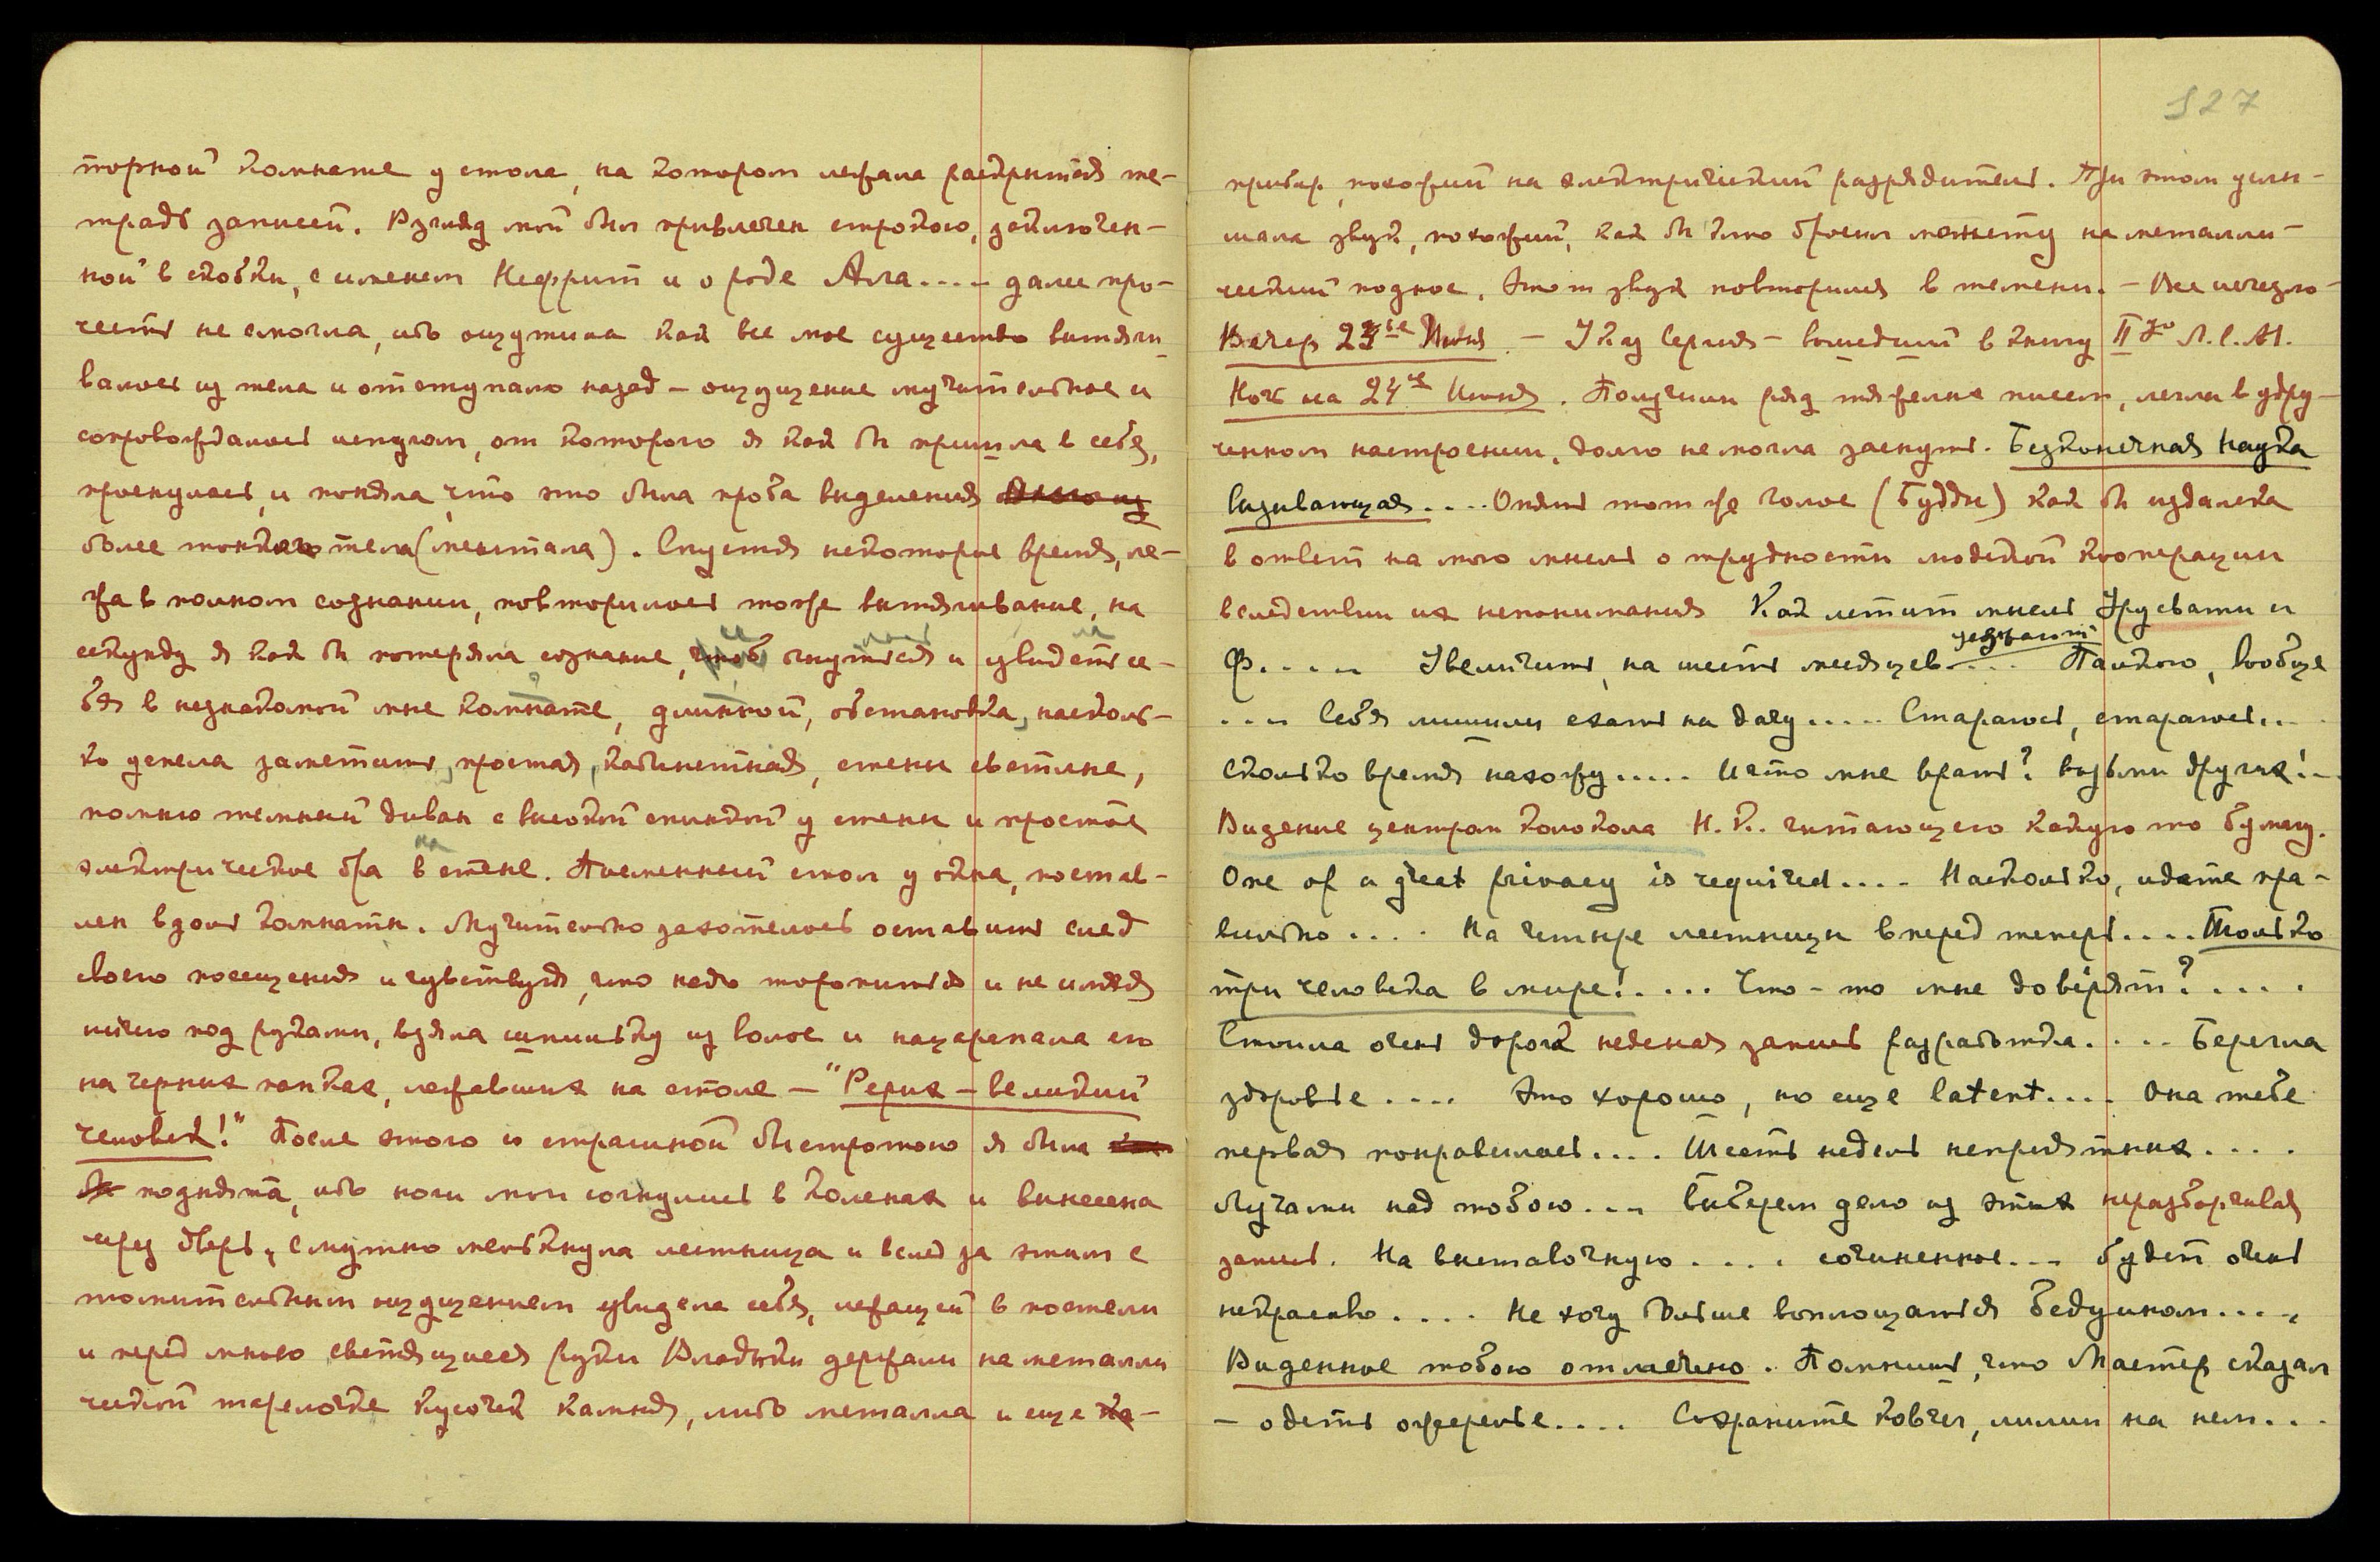 торной комнате у стола, на котором лежала раскрытая те-
традь записей. Взгляд мой был привлечен строкою, заключен-
ной в скобки, с именем Нефрит и о роде Алла.... дали про-
честь не смогла, ибо ощутила как все мое существо вытяги-
валось из тела и отступало назад – ощущение мучительное и
сопровождалось испугом, от которого я как бы пришла в себя,
проснулась, и поняла, что это была проба выделения
более тонкого тела (ментала). Спустя некоторое время, ле-
жа в полном сознании, повторилось тоже вытягивание, на
секунду я как бы потеряла сознание, чтоб очутиться и увидеть се-
бя в незнакомой мне комнате, длинной, обстановка, насколь-
ко успела заметить, простая, кабинетная, стены светлые,
помню темный диван с высокой спинкой у стены и простое
электрическое бра в стене. Письменный стол у окна, постав-
лен вдоль комнаты. Мучительно захотелось оставить след
своего посещения и чувствуя, что надо торопиться и не имея
ничего под руками, взяла шпильку из волос и нацарапала ею
на черных папках, лежавших на столе – "Рерих – великий
человек!" После этого со страшной быстротою я была
поднята, ибо ноги мои согнулись в коленях и вынесена
через дверь, смутно мелькнула лестница и вслед за этим с
томительным ощущением увидела себя, лежащей в постели
и перед мною светящиеся руки Владыки держали на металли
ческой тарелочке кусочек камня, либо металла и еще ка-
127
прибор, похожий на электрический разрядитель. При этом услы-
шала звук, похожий, как бы кто бросил монету на металли-
ческий поднос. Этот звук повторился в темени. – Все исчезло –
Вечер 23го Июня – Указ Сергия – вошедший в книгу IIую Л.С.М.
Ночь на 24ое Июня. Получили ряд тяжелых писем, легли в удру-
ченном настроении, долго не могла заснуть. Безконечная наука
вызывающая.... Опять тот же голос (Будды) как бы издалека
в ответ на мою мысль о трудности людской кооперации
вследствии их непонимания Как летит мысль Урусвати и
Ф..... Увеличить, на шесть месяцев.... задержит Палкою, вообще
.... Себя лишили ехать на дачу..... Стараюсь, стараюсь....
Сколько время нахожу..... И что мне врать? Возьми других!..
Видение центром колокола Н.К. читающего какую то бумагу.
One of a great privacy is required.... Насколько, идете пра-
вильно.... На четыре лестницы вперед теперь.... Только
три человека в мире!.... Что-то мне доверят?....
Стоила очень дорога неясная запись разработка.... Берегла
здоровье.... Это хорошо, но еще latent.... Она тебе
первая понравилась.... Шесть недель неприятных....
Лучами над тобою.... Выберем дело из этих неразборчивая
запись. На выставочную.... сочиненное.... будет очень
некрасиво.... Не хочу больше воплощаться бедуином....,
Виденное тобою отмечено. Помнишь, что Мастер сказал
– одеть ожерелье.... Сохраните ковчег, лилии на нем...